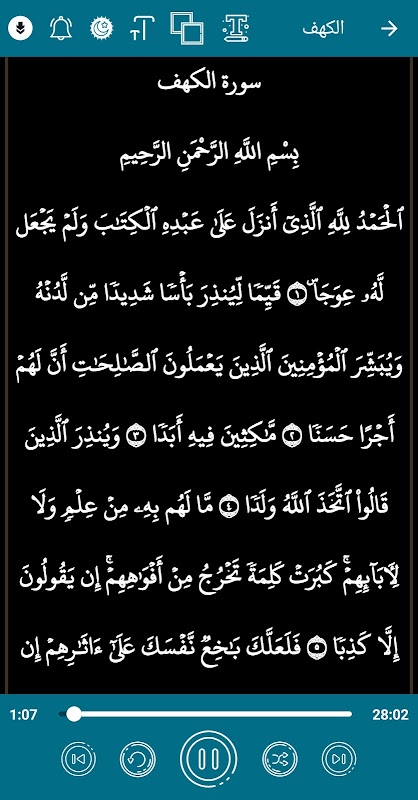 الكهف
سورة الكهف
بِسْمِ اللَّهِ الرَّحْمَنِ الرَّحِيمِ
ٱلْحَمْدُ لِلَّهِ ٱلَّذِىٓ أَنزَلَ عَلَىٰ عَبْدِهِ ٱلْكِتَـٰبَ وَلَمْ يَجْعَل
لَّهُۥ عِوَجَاۜ ١ قَيِّمًا لِّيُنذِرَ بَأْسًا شَدِيدًا مِّن لَّدُنْهُ
وَيُبَشِّرَ ٱلْمُؤْمِنِينَ ٱلَّذِينَ يَعْمَلُونَ ٱلصَّـٰلِحَـٰتِ أَنَّ لَهُمْ
أَجْرًا حَسَنًا ٢ مَّـٰكِثِينَ فِيهِ أَبَدًا ٣ وَيُنذِرَ ٱلَّذِينَ
قَالُوا۟ ٱتَّخَذَ ٱللَّهُ وَلَدًا ٤ مَّا لَهُم بِهِۦ مِنْ عِلْمٍ وَلَا
لِـَٔابَآئِهِمْۚ كَبُرَتْ كَلِمَةً تَخْرُجُ مِنْ أَفْوَٰهِهِمْۚ إِن يَقُولُونَ
إِلَّا كَذِبًا ٥ فَلَعَلَّكَ بَـٰخِعٌ نَّفْسَكَ عَلَىٰٓ ءَاثَـٰرِهِمْ إِن
1:07
28:02